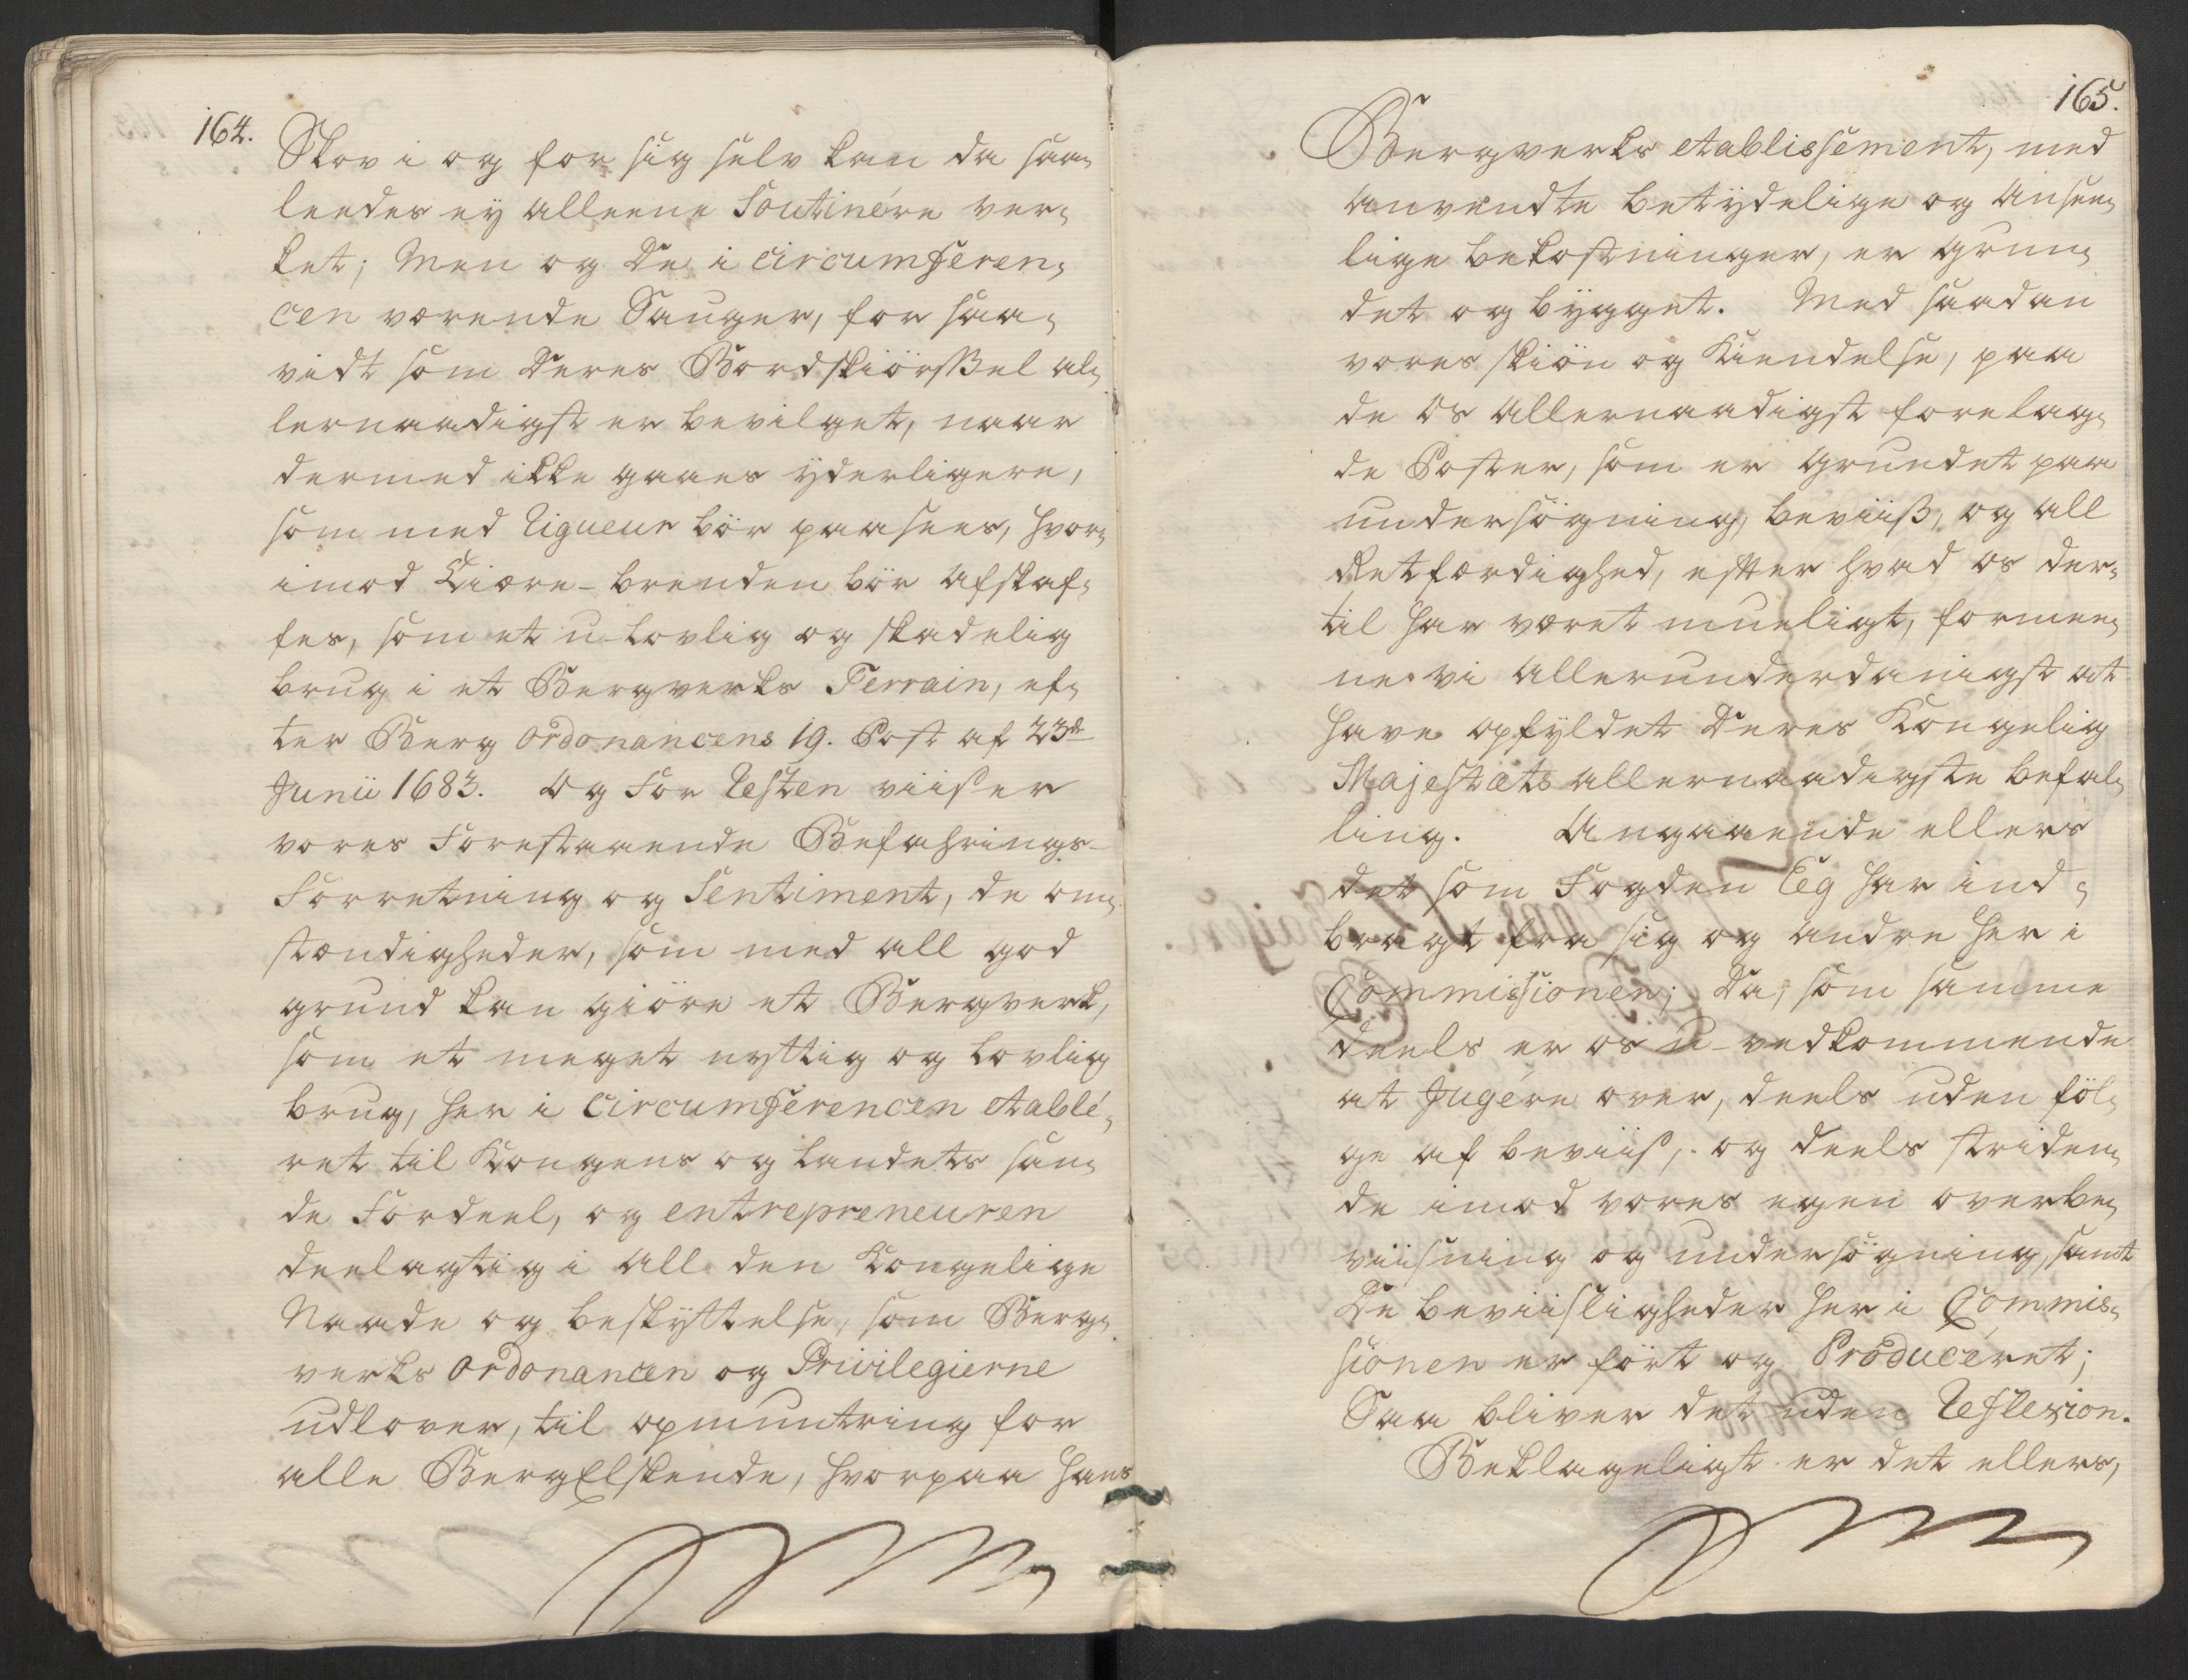 164.
Skov i og for sig selv kan da saa,
leedes ey alleene Soutinére ver,
ket; Men og De i circumferen,
cen værende Sauger, for saa,
vidt som Deres Bordskiörßel al,
lernaadigst er bevilget, naar
dermed ikke gaaes yderligere,
som med Rigueur bör paasees, hvor,
imod Tiære-brenden bör Afskaf,
fes, som et u-lovlig og skadelig
brug i et Bergverks Terrain, ef,
ter Berg Ordonancens 19. Post af 23de
Junii 1683. Og For Resten viiser
vores Forestaaende Befahrings-
Forretning og Sentiment, de om,
stændigheder, som med all god
grund kan giöre et Bergverk,
som et meget nyttig og lovlig
brug, her i Circumferencen etablé,
ret til Kongens og Landets san,
de Fordeel, og entrepreneuren
deelagtig i All den Kongelige
Naade og beskyttelse, som Berg,
verks Ordonancen og Privilegierne
udlover, til opmuntring for
alle BergElskende, hvorpaa hans
165.
Bergverks etablissement, med
anvendte betydelige og Ansee,
lige bekostninger, er grun,
det og bygget. Med saadan
vores skiön og Kiendelse, paa
de Os Allernaadigst forelag,
de Poster, som er grundet paa
undersögning, beviiß, og all
Retfærdighed, efter hvad os der,
til har været mueligt, formee,
ne vi Allerunderdanigst at
have opfyldet Deres Kongelig
Majestæts allernaadigste befal,
ling. Angaaende ellers
det som Fogden Leg har ind,
bragt fra sig og andre her i
Commissionen; Da, som samme
deels er os u-vedkommende
at Jugére over, deels uden föl,
ge af beviis, og deels striden,
de imod vores egen overbe,
viisning og undersögning, samt
De beviisligheder her i Commis,
sionen er fört og Producéret;
Saa bliver det uden Reflexion.
Beklageligt er det ellers,